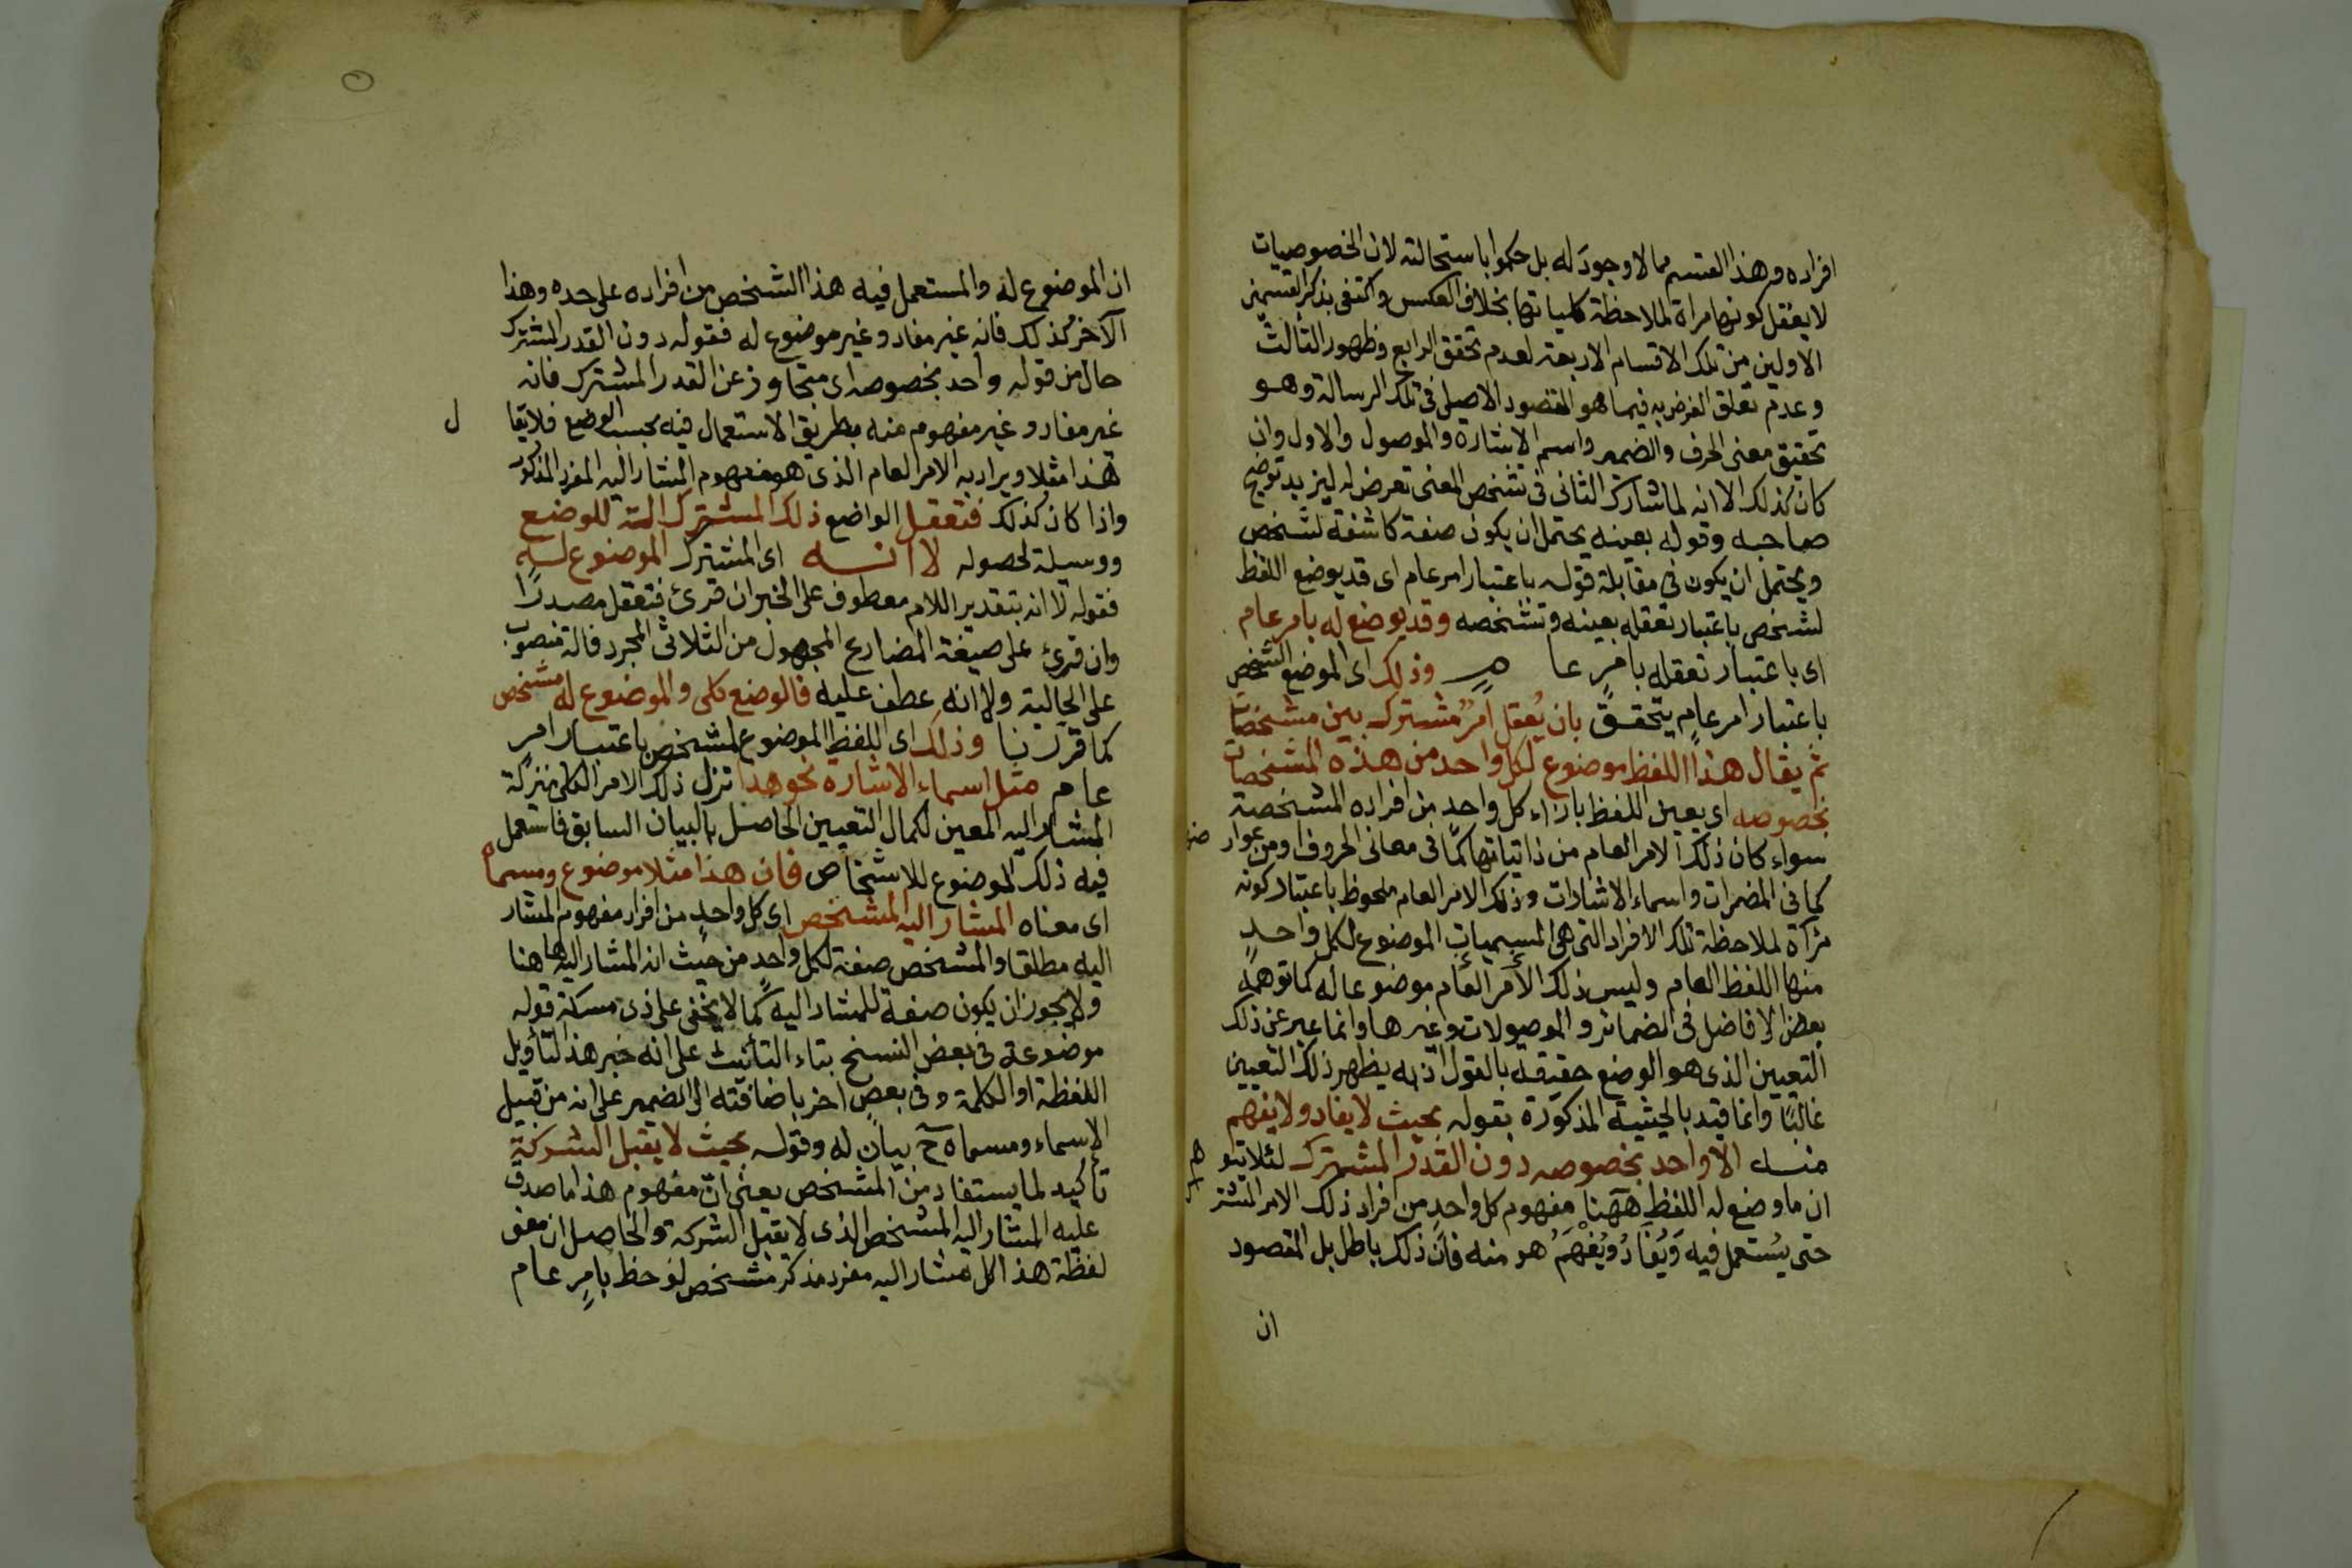 افراده وهذا القسم مما لا وجود له بل حكموا باستحالته لان الخصوصيات
لا يعقل كونها مرآة لملاحظة كلياتها بخلاف العكس واكتفى بذكر القسمين
الاولين من تلك الاقسام الاربعة لعدم تحقق الرابع وظهور الثالث
وعدم تعلق الغرض به فيما هو المقصود الاصلي في تلك الرسالة وهو
تحقيق معنى الحرف والضمير واسم الاشارة والموصول والاول وان
كان كذلك الا انه لما شارك الثاني في تشخص المعنى تعرض له ليزيد توضيح
صاحبه وقوله بعينه يحتمل ان يكون صفة كاشفة لشخص
ويحتمل ان يكون في مقابلة قوله باعتبار امر عام اى قد يوضع اللفظ
لشخص باعتبار تعقله بعينه وتشخصه وقد يوضع له بامر عام
اى باعتبار تعقله بامرٍ عا مٍ وذلك اى الموضع الشخص
باعتبار امر عامٍ يتحقق بان يُعقل امرٌ مشترك بين مشخصات
ثم يقال هذا اللفظ موضوع لكل واحد من هذه المشخصات
بخصوصه اى يعين اللفظ بازاء كل واحدٍ من افراده المشخصة
سواء كان ذلك الامر العام من ذاتياتها كما في معانى الحروف او من عوارضها
كما في المضمرات واسماء الاشارات وذلك الامر العام ملحوظ باعتبار كونه
مرآة لملاحظة تلك الافراد التى هى المسميات الموضوع لكل واحدٍ
منها اللفظ العام وليس ذلك الأمر العام موضوعا له كما توهمه
بعض الافاضل في الضمائر والموصولات وغيرها وانما عبر عن ذلك
التعيين الذى هو الوضع حقيقة بالقول اذ به يظهر ذلك التعيين
غالبًا وانما قيد بالحيثية المذكورة بقوله بحيث لا يفاد ولا يفهم
منه الا واحد بخصوصه دون القدر المشترك لئلا يتوهم
ان ما وضع له اللفظ ههنا مفهوم كل واحدٍ من افراد ذلك الامر المشترك
حتى يُستعمل فيه وَيُفَادُ ويُفْهَمُ هو منه فان ذلك باطل بل المقصود
ان
ان الموضوع له والمستعمل فيه هذا الشخص من افراده على حده وهذا
الآخر كذلك فانه غير مفاد وغير موضوع له فقوله دون القدر المشترك
حال من قوله واحد بخصوصه اى متجاوز عن القدر المشترك فانه
غير مفاد وغير مفهوم منه بطريق الاستعمال فيه بحسب الوضع فلا يقال
هذا مثلا ويراد به الامر العام الذى هو مفهوم المشار اليه المفرد المذكور
واذا كان كذلك فتعقل الواضع ذلك المشترك آلة للوضع
ووسيلة لحصوله لا انه اى المشترك الموضوع له
فقوله لا انه بتقدير اللام معطوف على الخبر ان قرئ فتعقل مصدرًا
وان قرئ على صيغة المضارع المجهول من الثلاثى المجرد فآلة منصوب
على الحالية ولا انه عطف عليه فالوضع كلى والموضوع له مشخص
كما قررنا وذلك اى اللفظ الموضوع لمشخص باعتبار امرٍ
عام مثل اسماء الاشارة نحو هذا نزل ذلك الامر الكلى منزلة
المشار اليه المعين لكمال التعيين الحاصل بالبيان السابق فاستعمل
فيه ذلك الموضوع للاشخاص فان هذا مثلا موضوع ومسماه
اى معناه المشار اليه المشخص اى كل واحدٍ من افراد مفهوم المشار
اليه مطلقا والمشخص صفة لكل واحدٍ من حيث انه المشار اليه هاهنا
ولا يجوز ان يكون صفة للمشار اليه كما لا يخفى على ذى مسكة قوله
موضوعة في بعض النسخ بتاء التأنيث على انه خبر هذا لتأويل
اللفظة او الكلمة وفى بعضٍ اخر باضافته الى الضمير على انه من قبيل
الاسماء ومسماه ح بيان له وقوله بحيث لا يقبل الشركة
تأكيد لما يستفاد من المشخص يعنى ان مفهوم هذا ما صدق
عليه المشار اليه المشخص الذى لا يقبل الشركة والحاصل ان معنى
لفظة هذا كل مشار اليه مفرد مذكر مشخص لوحظ بامرٍ عام